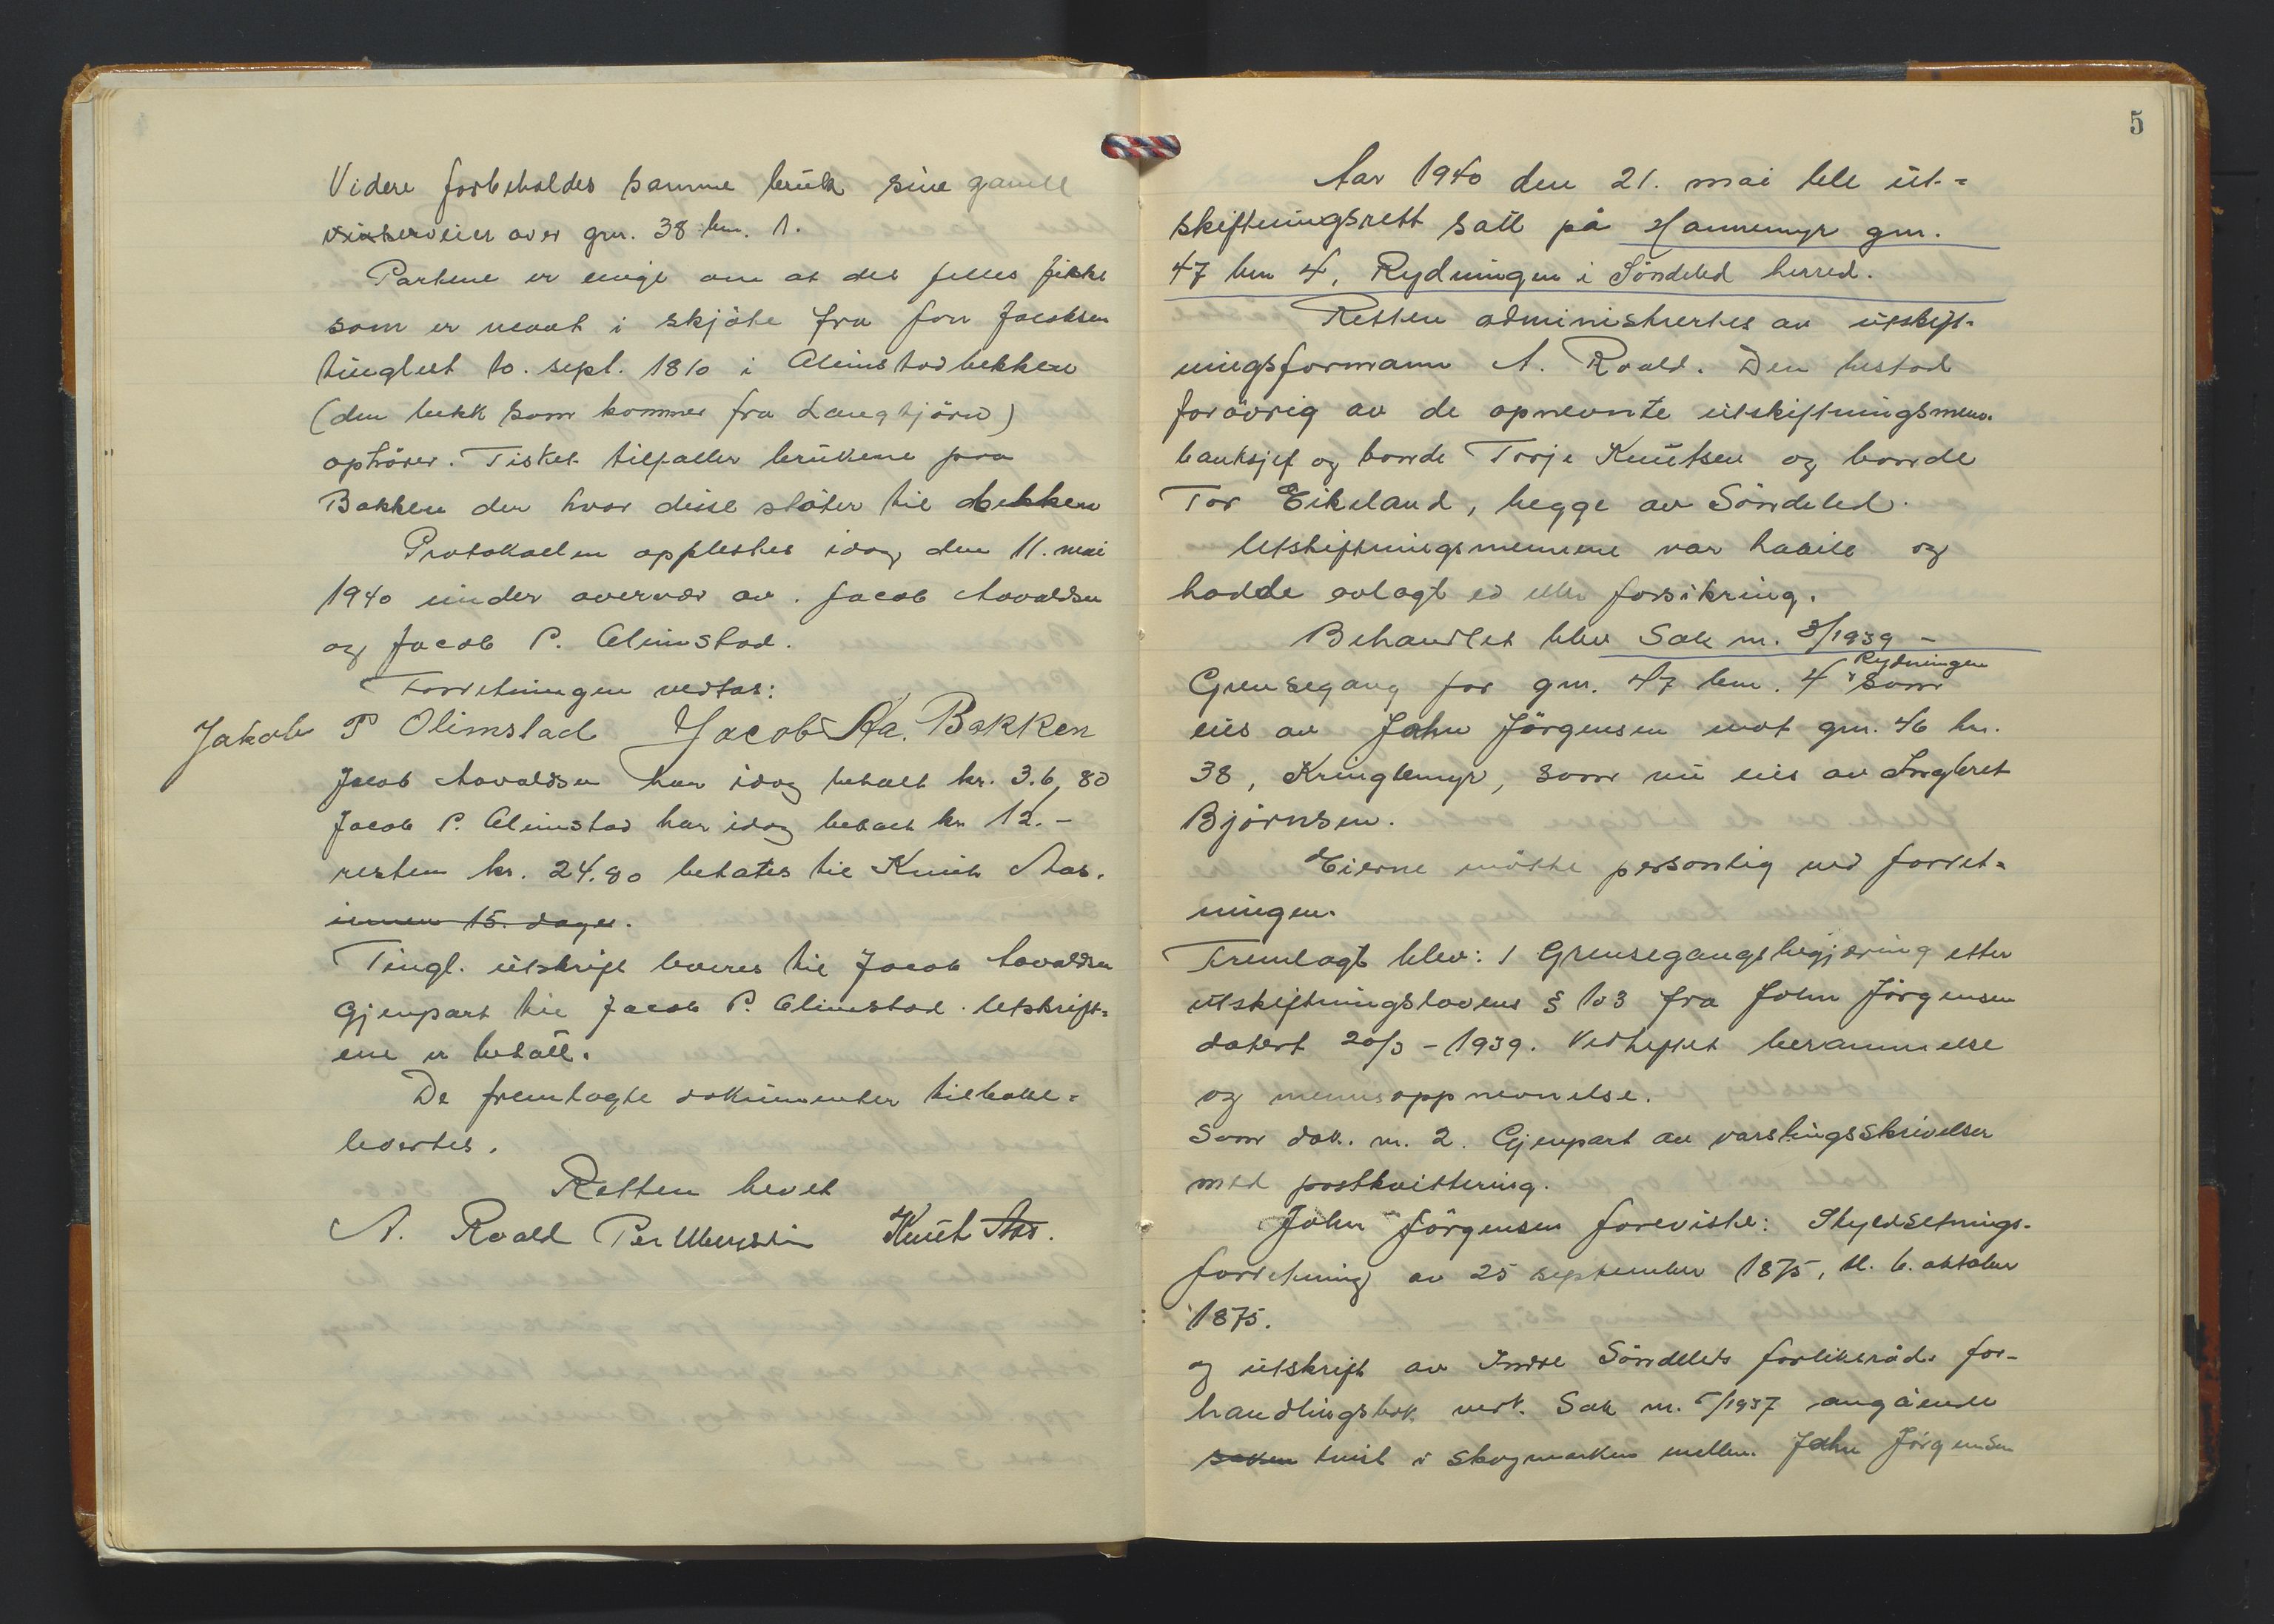 Videre forbeholdes samme bruk sine gamle
vinterveier over gnr. 38 bnr. 1.
Partene er enige om at det felles fiske
som er nevnt i skjöte fra Jon Jacobsen
tinglest 10. sept. 1810 i Olimstadbekken
(den bekk som kommer fra Langtjörn)
ophörer. Fisket tilfaller brukene paa
Bakken der hvor disse stöter til bekken
Protokollen opplestes idag den 11. mai
1940 under overvær av. Jacob Aavaldsen
og Jacob P. Olimstad.
Forretningen vedtas:
Jakob P Olimstad Jacob Aa. Bakken
Jacob Aavaldsen har idag betalt kr. 36,80
Jacob P. Olimstad har idag betalt kr. 12.-
resten kr. 24.80 betales til Knut Aas.
innen 15. dager.
Tingl. utskrift leveres til Jacob Aavaldsen
Gjenpart til Jacob P. Olimstad. Utskrift-
ene er betalt.
De fremlagte dokumenter tilbake-
levertes.
Retten hevet
A. Roald Per Knut Aas.
5
Aar 1940 den 21. mai ble ut-
skiftningsrett satt på Hannemyr gnr.
47 bnr 4, Rydningen i Söndeled herred.
Retten administrertes av utskift-
ningsformann A. Roald. Den bestod
forövrig av de opnevnte utskiftningsmenn.
banksjef og bonde Torje Knutsen og bonde
Tor Eikeland, begge av Söndeled.
Utskiftningsmennene var habile og
hadde avlagt ed eller forsikring.
Behandlet blev Sak nr. 8/1939 -
Grensegang for gnr. 47 bnr. 4 Rydningen som
eies av John Jörgensen mot gnr. 46 bnr.
38, Kringlemyr, som nu eies av Ingbret
Björnsen.
Eierne mötte personlig ved forret-
ningen.
Fremlagt blev: 1 Grensegangsbegjæring etter
utskiftningslovens § 103 fra John Jörgensen
datert 20/3 - 1939. Vedheftet berammelse
og mennsoppnevnelse.
Som dok. nr. 2. Gjenpart av varslingsskrivelser
med postkvittering.
John Jörgensen foreviste: Skyldsetnings-
forretning av 25 september 1875, tl. 6. oktober
1875.
og utskrift av Indre Söndeleds forliksråds for-
handlingsbok vedk. Sak nr. 5/1937 angående
saken tvist i skogmarken mellem John Jörgensen